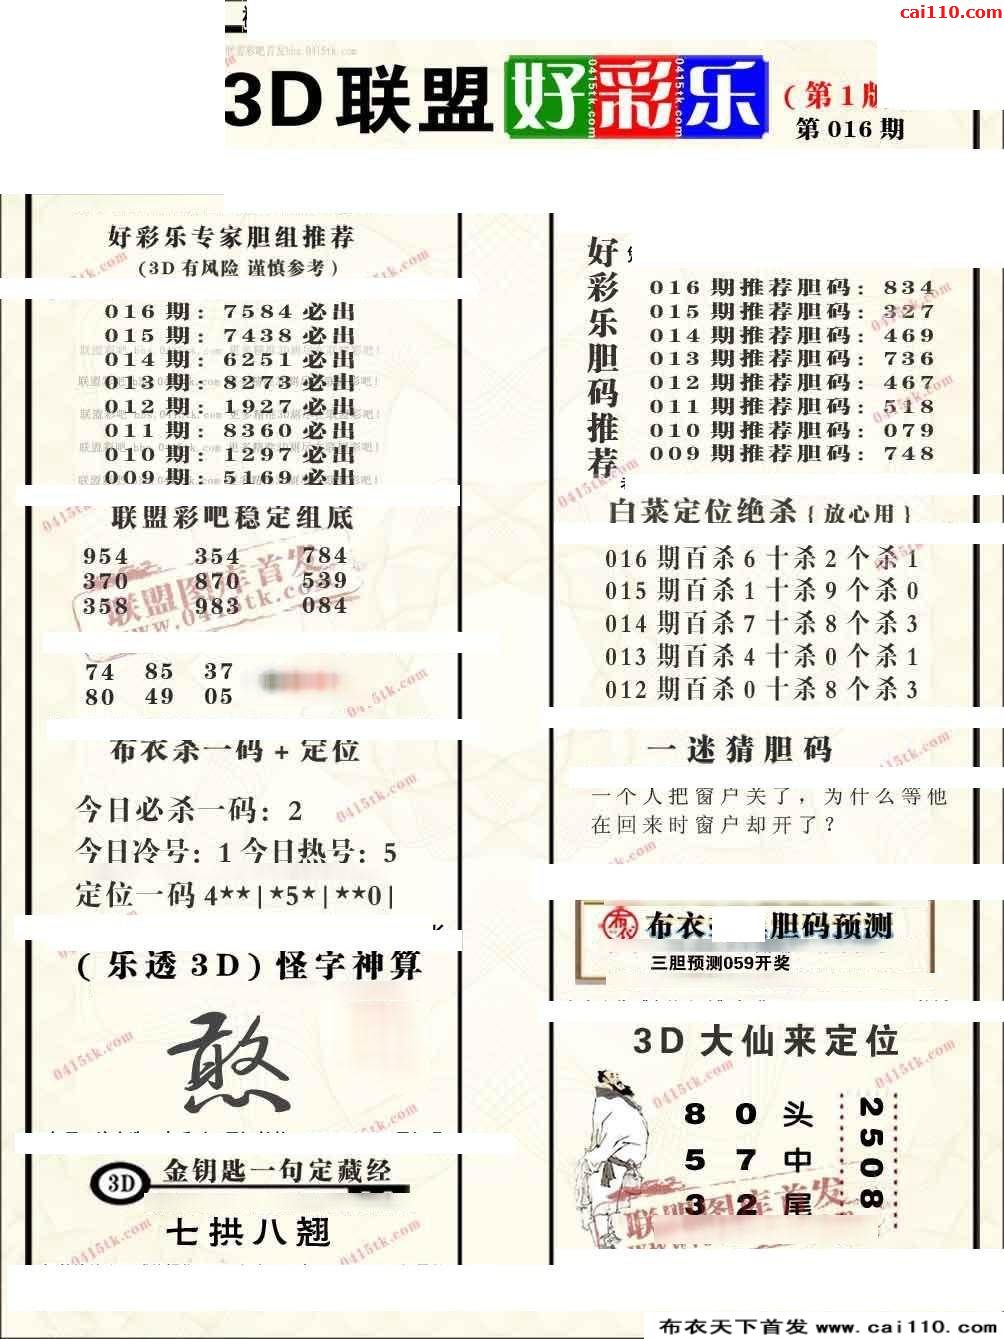 cai110.com
3D联盟好彩乐
(第1版
第016期
好彩乐专家胆组推荐
(3D有风险 谨慎参考)
016期: 7584必出
015期: 7438必出
014期: 6251必出
013期: 8273必出
012期: 1927必出
011期: 8360必出
010期: 1297必出
009期: 5169必出
联盟彩吧稳定组底
954 354 784
370 870 539
358 983 084
联盟图库首发
www.0415tk.com
74 85 37
80 49 05
布衣杀一码+定位
今日必杀一码: 2
今日冷号: 1 今日热号: 5
定位一码 4**|*5*|**0|
(乐透3D)怪字神算
憨
3D 金钥匙一句定藏经
七拱八翘
好彩乐胆码推荐
016期推荐胆码: 834
015期推荐胆码: 327
014期推荐胆码: 469
013期推荐胆码: 736
012期推荐胆码: 467
011期推荐胆码: 518
010期推荐胆码: 079
009期推荐胆码: 748
白菜定位绝杀{放心用}
016期百杀6十杀2个杀1
015期百杀1十杀9个杀0
014期百杀7十杀8个杀3
013期百杀4十杀0个杀1
012期百杀0十杀8个杀3
一迷猜胆码
一个人把窗户关了，为什么等他
在回来时窗户却开了？
布衣 胆码预测
三胆预测059开奖
3D大仙来定位
8 0 头
5 7 中
3 2 尾
2508
联盟图库首发
0415tk.com
布衣天下首发 www.cai110.com